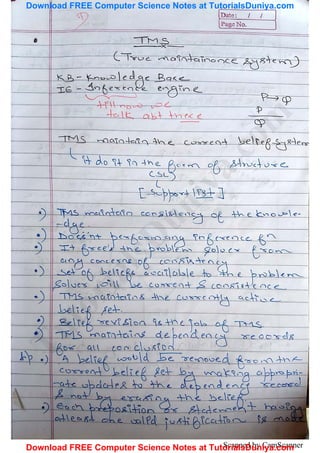 Download FREE Computer Science Notes at TutorialsDuniya.com
Date: / /
Page No.
TMS
(True maintainance system)
KB - Knowledge Base
IE - Inference engine
till now we
talk abt these
P → Q
P
Q
TMS maintain the current belief system
it do it in the form of structure
CSL
[Support list]
•) TMS maintain consistency of the knowle-
-dge.
•) Doesn't perform any inference fn
•) It frees the problem solver from
any concerns of consistency
•) set of beliefs available to the problem
solver will be current & consistence
•) TMS maintains the currently active
belief set.
•) Belief revision is the job of TMS
•) TMS maintains dependency records
for all conclusion.
•) A belief would be removed from the
current belief set by making appropri-
-ate updates to the dependency record
& not by erasing the belief
•) each preposition or statement having
atleast one valid justification is made
Scanned by CamScanner
Download FREE Computer Science Notes at TutorialsDuniya.com